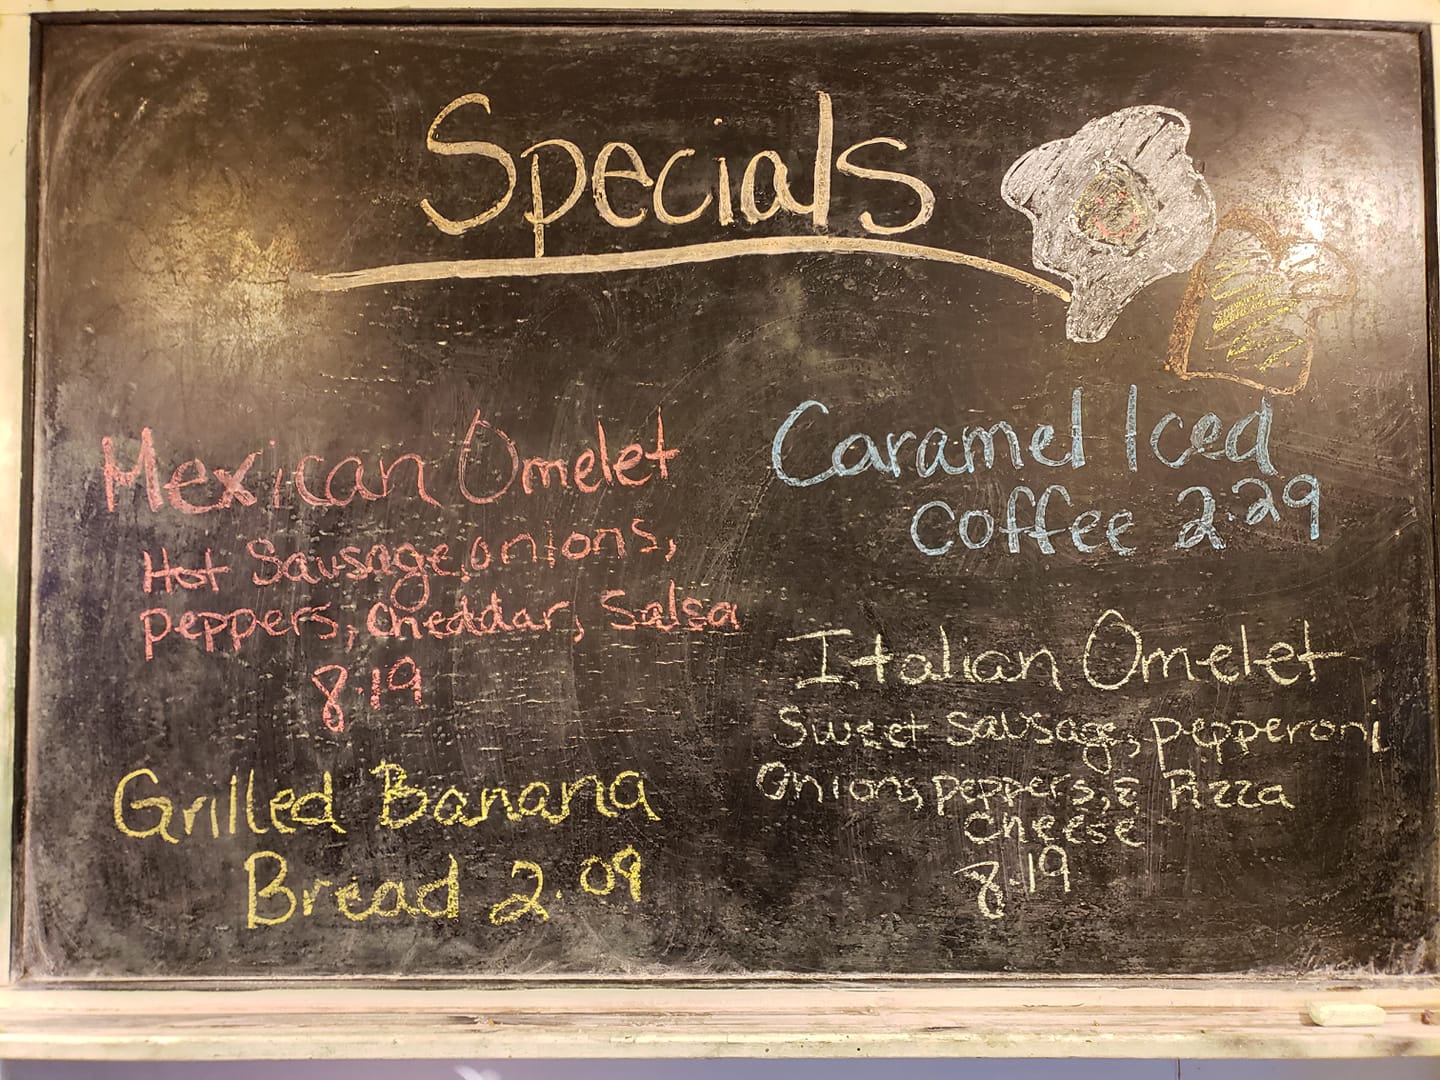 Specials
Mexican Omelet
Hot Sausage, onions,
peppers, cheddar, Salsa
8.19
Grilled Banana
Bread 2.09
Caramel Iced
Coffee 2.29
Italian Omelet
Sweet Sausage, pepperoni
Onions, peppers, & Pizza
cheese
8.19